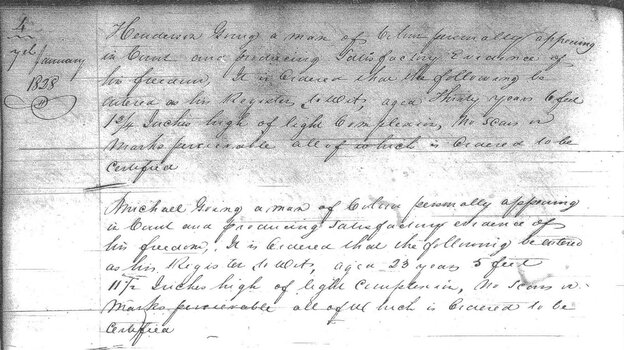 4
7th January
1838
Henderson Going a man of Colour personally appearing
in Court and producing Satisfactory Evidence of
his freedom, It is Ordered that the following be
Entered as his Register, to Wit, aged Thirty years 6 feet
1 3/4 Inches high of light Complexion, No Scars or
Marks perceivable all of which is Ordered to be
Certified
Michael Going a man of Colour personally appearing
in Court and producing Satisfactory evidence of
his freedom, It is Ordered that the following be entered
as his Register to Wit, aged 23 years 5 feet
11 1/2 Inches high of light Complexion, No Scars or
Marks perceivable all of which is Ordered to be
Certified